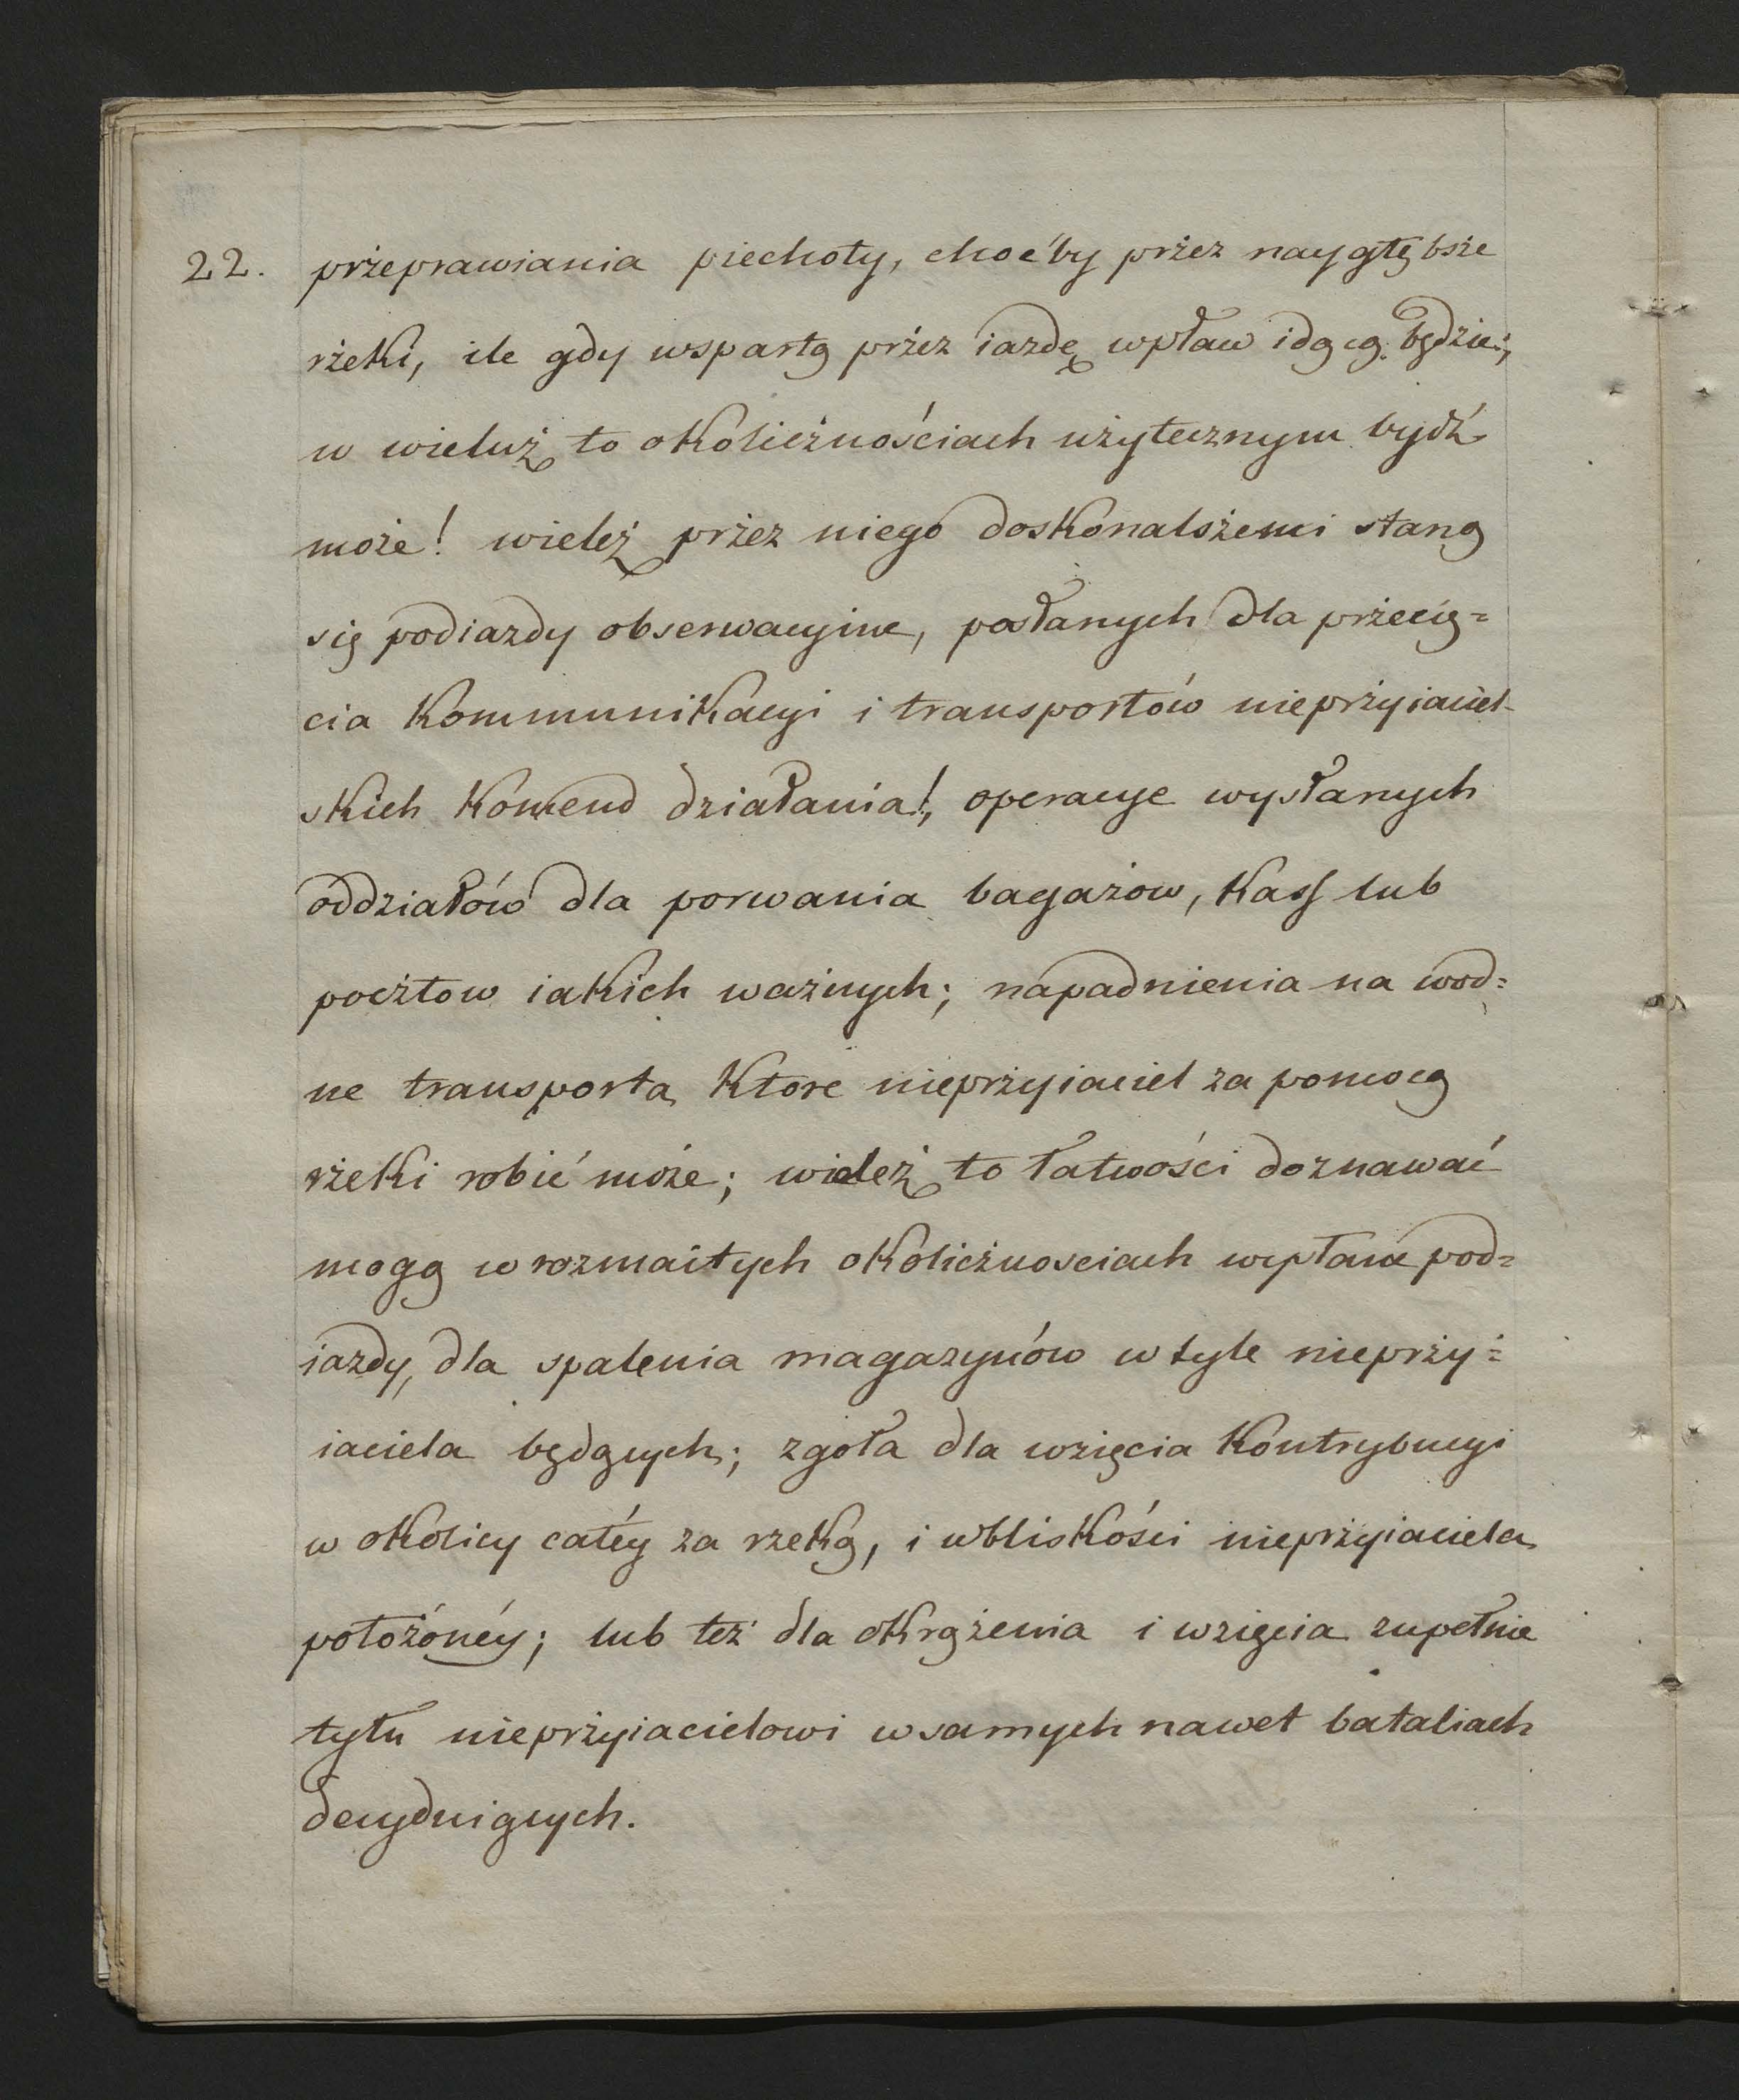 22. przeprawiania piechoty, choćby przez naygłębsze
rzeki, ile gdy wspartą przez iazdę wpław idącą będzie;
w wieluż to okolicznościach użytecznym bydź
może! wieleż przez niego doskonalszemi staną
się podiazdy obserwacyine, posłanych dla przecię=
cia kommunikacyi i transportów nieprzyiaciel-
skich komend działania!, operacye wysłanych
oddziałów dla porwania bagażow, kass lub
pocztow iakich ważnych; napadnienia na wod=
ne transporta ktore nieprzyiaciel za pomocą
rzeki robić może; wieleż to łatwości doznawać
mogą w rozmaitych okolicznosciach wpław pod=
iazdy, dla spalenia magazynów w tyle nieprzy=
iaciela będących; zgoła dla wzięcia kontrybucyi
w okolicy całéy za rzeką, i wbliskości nieprzyiaciela
położónéy; lub też dla okrążenia i wzięcia zupełnie
tyłu nieprzyiacielowi w samych nawet bataliach
decyduiących.